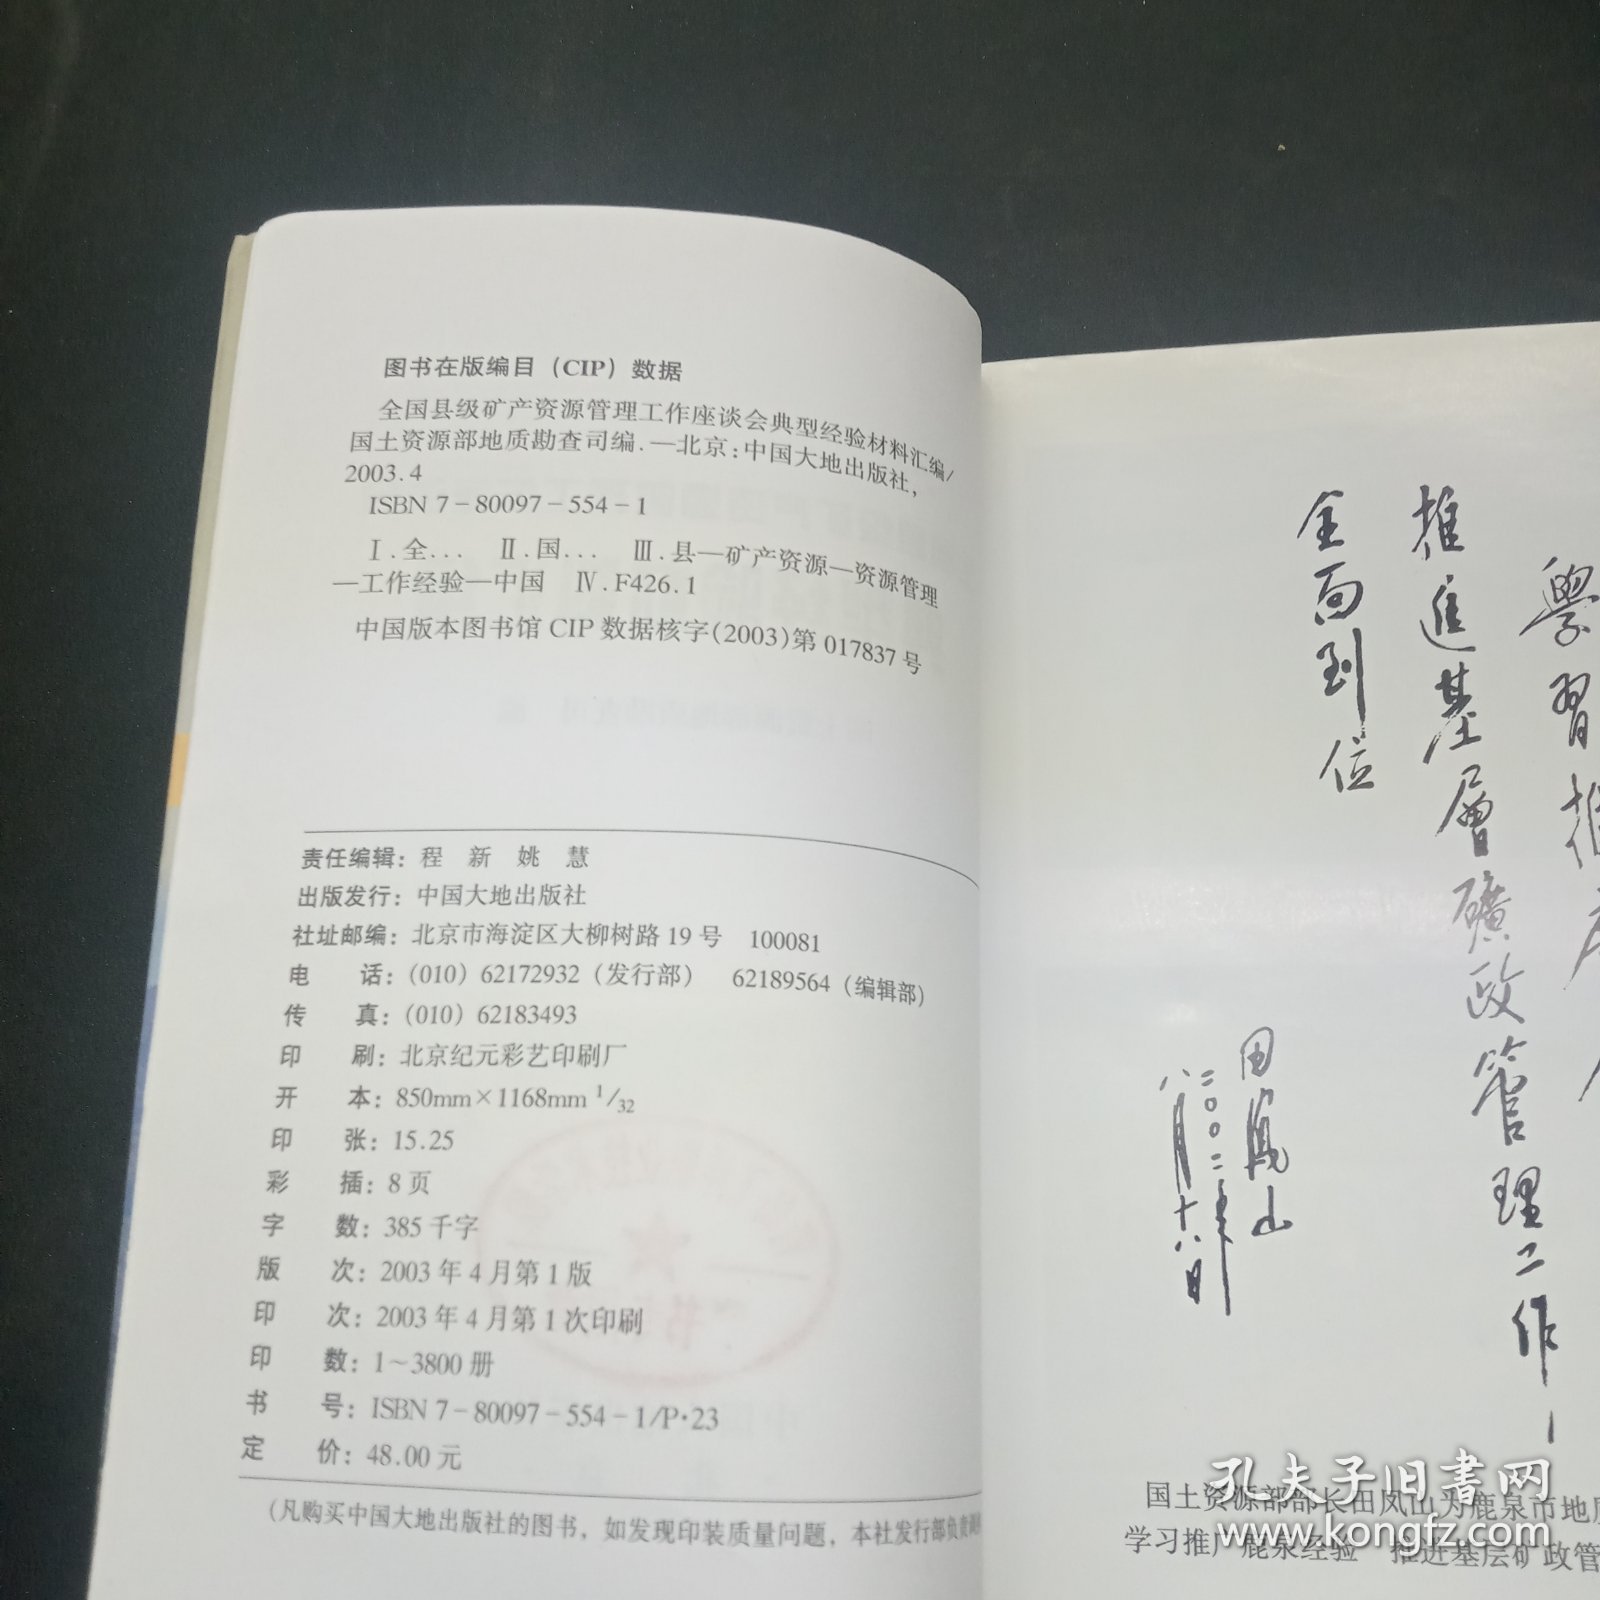 图书在版编目（CIP）数据
全国县级矿产资源管理工作座谈会典型经验材料汇编/
国土资源部地质勘查司编.—北京：中国大地出版社，
2003.4
ISBN 7-80097-554-1
Ⅰ.全… Ⅱ.国… Ⅲ.县—矿产资源—资源管理
—工作经验—中国 Ⅳ.F426.1
中国版本图书馆 CIP 数据核字（2003）第 017837 号
责任编辑：程 新 姚 慧
出版发行：中国大地出版社
社址邮编：北京市海淀区大柳树路 19 号 100081
电 话：（010）62172932（发行部） 62189564（编辑部）
传 真：（010）62183493
印 刷：北京纪元彩艺印刷厂
开 本：850mm×1168mm 1/32
印 张：15.25
彩 插：8 页
字 数：385 千字
版 次：2003 年 4 月第 1 版
印 次：2003 年 4 月第 1 次印刷
印 数：1～3800 册
书 号：ISBN 7-80097-554-1/P·23
定 价：48.00 元
（凡购买中国大地出版社的图书，如发现印装质量问题，本社发行部负责调
學習推广
推進基層礦政管理工作
全面到位
田凤山
二〇〇二年
八月十八日
国土资源部部长田凤山为鹿泉市地质
学习推广鹿泉经验 推进基层矿政管
孔夫子旧書网
www.kongfz.com